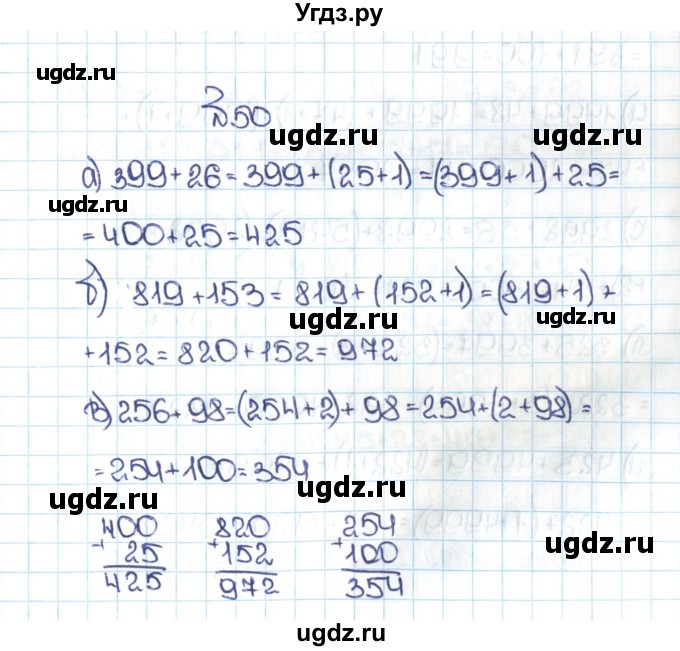 Угдз.ру
ugdz.ru
№50
ugdz.ru
а) 399+26=399+(25+1)=(399+1)+25=
ugdz.ru
=400+25=425
б) 819+153=819+(152+1)=(819+1)+
ugdz.ru ugdz.ru
+152=820+152=972
в) 256+98=(254+2)+98=254+(2+98)=
ugdz.ru
=254+100=354
ugdz.ru ugdz.ru
400 820 254
+ 25 +152 +100
425 972 354
ugdz.ru
ugdz.ru
ugdz.ru